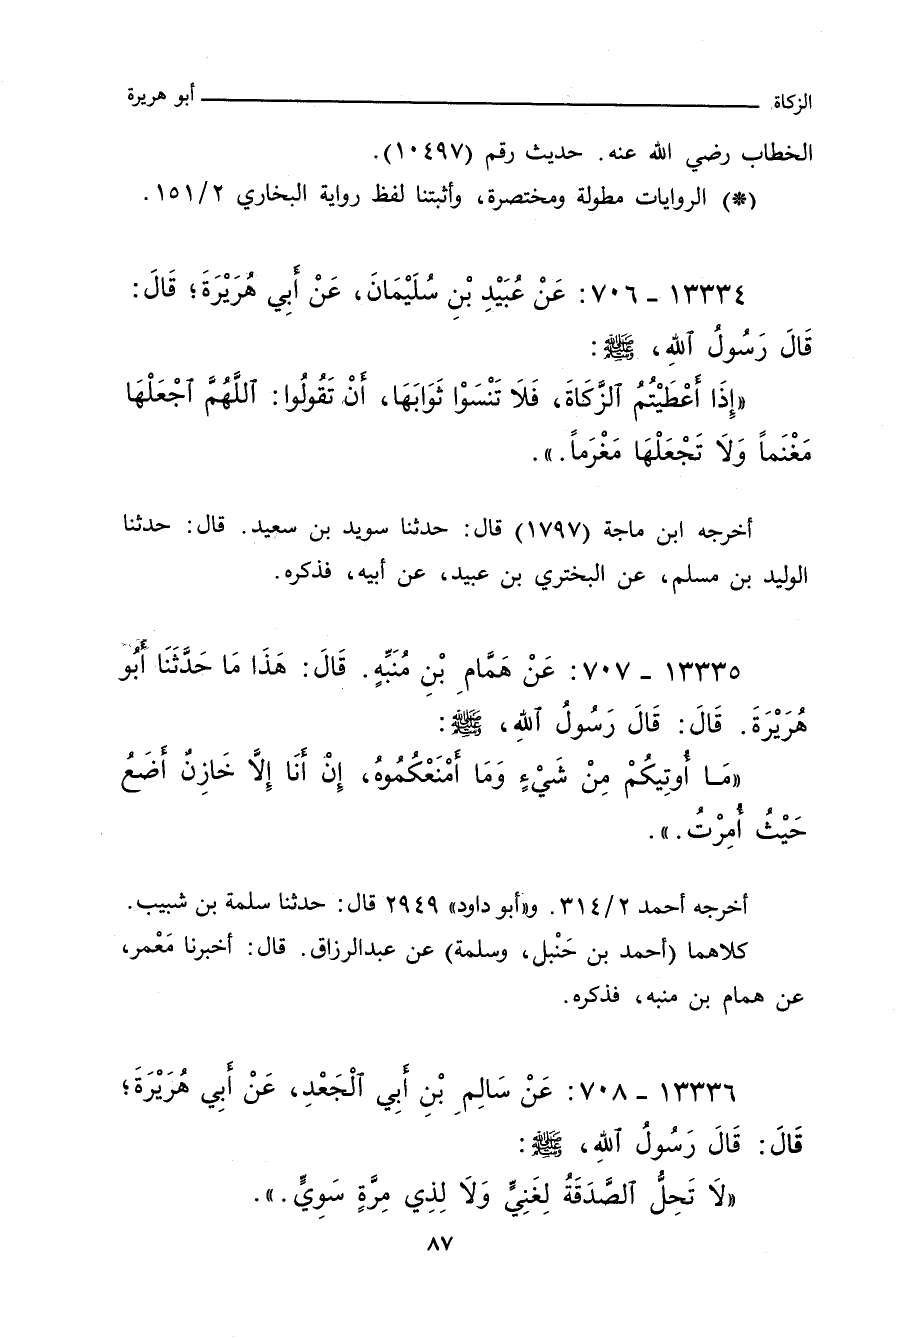 الزكاة ـــــــــ أبو هريرة
الخطاب رضي الله عنه. حديث رقم (١٠٤٩٧).
(*) الروايات مطولة ومختصرة، وأثبتنا لفظ رواية البخاري ١٥١/٢.
١٣٣٣٤ - ٧٠٦: عَنْ عُبَيْدِ بْنِ سُلَيْمَانَ، عَنْ أَبِي هُرَيْرَةَ؛ قَالَ:
قَالَ رَسُولُ ٱللهِ، ﷺ:
«إِذَا أَعْطَيْتُمُ ٱلزَّكَاةَ، فَلَا تَنْسَوْا ثَوَابَهَا، أَنْ تَقُولُوا: ٱللَّهُمَّ ٱجْعَلْهَا
مَغْنَماً وَلَا تَجْعَلْهَا مَغْرَماً.».
أخرجه ابن ماجة (١٧٩٧) قال: حدثنا سويد بن سعيد. قال: حدثنا
الوليد بن مسلم، عن البختري بن عبيد، عن أبيه، فذكره.
١٣٣٣٥ - ٧٠٧: عَنْ هَمَّامِ بْنِ مُنَبِّهٍ. قَالَ: هَذَا مَا حَدَّثَنَا أَبُو
هُرَيْرَةَ. قَالَ: قَالَ رَسُولُ ٱللهِ، ﷺ:
«مَا أُوتِيكُمْ مِنْ شَيْءٍ وَمَا أَمْنَعْكُمُوهُ، إِنْ أَنَا إِلَّا خَازِنٌ أَضَعُ
حَيْثُ أُمِرْتُ.».
أخرجه أحمد ٣١٤/٢. و«أبو داود» ٢٩٤٩ قال: حدثنا سلمة بن شبيب.
كلاهما (أحمد بن حَنْبل، وسلمة) عن عبدالرزاق. قال: أخبرنا مَعْمر،
عن همام بن منبه، فذكره.
١٣٣٣٦ - ٧٠٨: عَنْ سَالِمِ بْنِ أَبِي ٱلْجَعْدِ، عَنْ أَبِي هُرَيْرَةَ؛
قَالَ: قَالَ رَسُولُ ٱللهِ، ﷺ:
«لَا تَحِلُّ ٱلصَّدَقَةُ لِغَنِيٍّ وَلَا لِذِي مِرَّةٍ سَوِيٍّ.».
٨٧